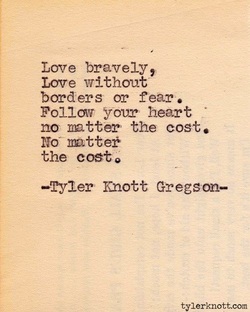 Love bravely,
Love without
borders or fear.
Follow your heart
no matter the cost.
No matter
the cost.
-Tyler Knott Gregson-
tylerknott.com